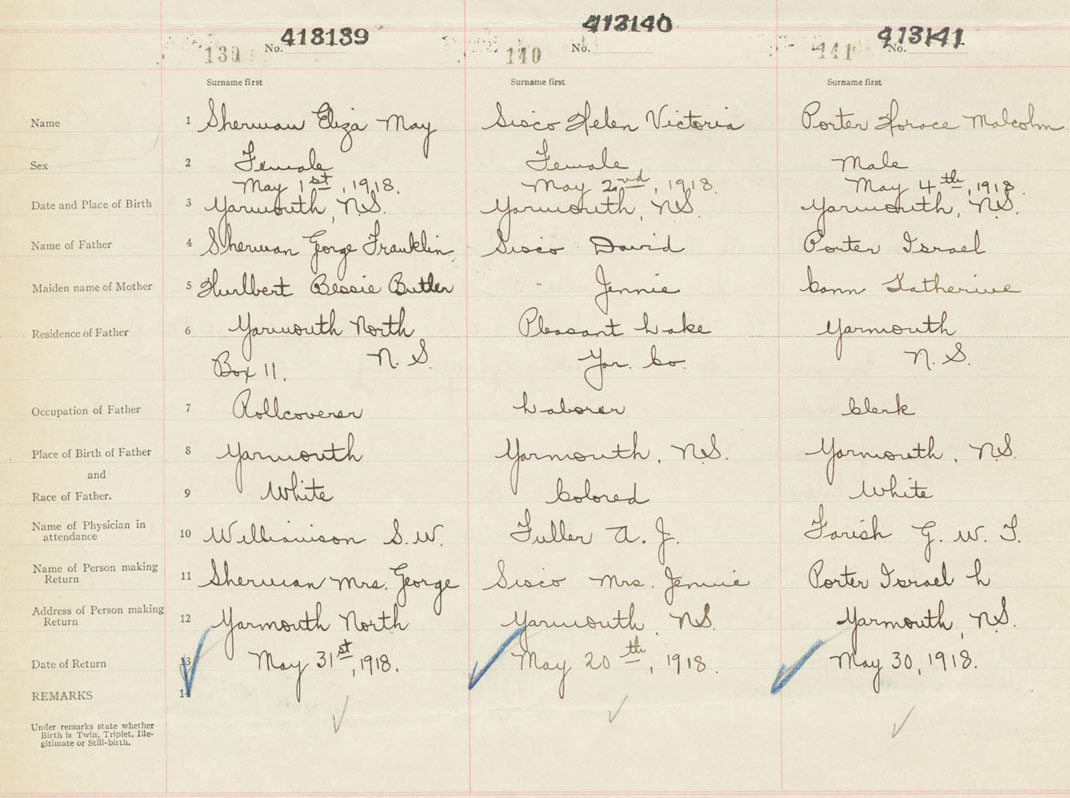 413139 413140 413141
139 No. 140 No. 141 No.
Surname first Surname first Surname first
Name 1 Sherman Eliza May Sisco Helen Victoria Porter Horace Malcolm
Sex 2 Female Female Male
May 1st, 1918. May 2nd, 1918. May 4th, 1918.
Date and Place of Birth 3 Yarmouth, N.S. Yarmouth, N.S. Yarmouth, N.S.
Name of Father 4 Sherman George Franklin Sisco David Porter Israel
Maiden name of Mother 5 Hurlbert Bessie Butler " Jennie Cann Katherine
Residence of Father 6 Yarmouth North Pleasant Lake Yarmouth
Box 11. N. S. Yar. Co. N. S.
Occupation of Father 7 Rollcoverer Laborer Clerk
Place of Birth of Father 8 Yarmouth Yarmouth, N.S. Yarmouth, N.S.
and
Race of Father. 9 White Colored White
Name of Physician in
attendance 10 Williamson S. W. Fuller A. J. Farish G. W. T.
Name of Person making
Return 11 Sherman Mrs. George Sisco Mrs. Jennie Porter Israel h
Address of Person making
Return 12 Yarmouth North Yarmouth, N.S. Yarmouth, N.S.
Date of Return 13 May 31st, 1918. May 20th, 1918. May 30, 1918.
REMARKS 14
Under remarks state whether
Birth is Twin, Triplet, Ille-
gitimate or Still-birth.